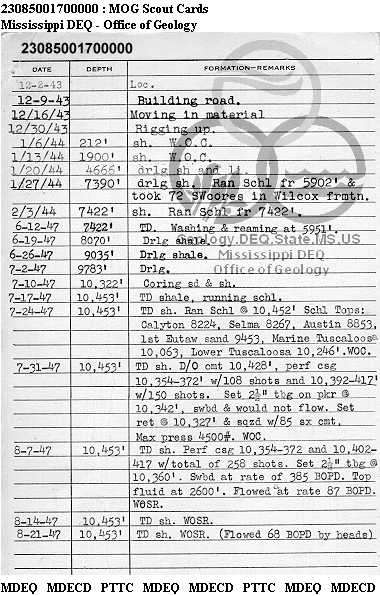 23085001700000 : MOG Scout Cards
Mississippi DEQ - Office of Geology
23085001700000
DATE DEPTH FORMATION—REMARKS
12-2-43 Loc.
12-9-43 Building road.
12/16/43 Moving in material
12/30/43 Rigging up.
1/6/44 212' sh. W.O.C.
1/13/44 1900' sh. W.O.C.
1/20/44 4666' drlg sh and li.
1/27/44 7390' drlg sh. Ran Schl fr 5902' &
took 72 SWcores in Wilcox frmtn.
2/3/44 7422' sh. Ran Schl fr 7422'.
6-12-47 7422' TD. Washing & reaming at 5951'.
6-19-47 8070' Drlg shale.
Geology.DEQ.State.MS.US
6-26-47 9035' Drlg shale.
Mississippi DEQ
7-2-47 9783' Drlg.
Office of Geology
7-10-47 10,322' Coring sd & sh.
7-17-47 10,453' TD shale, running schl.
7-24-47 10,453' TD sh. Ran Schl @ 10,452' Schl Tops:
Calyton 8224, Selma 8267, Austin 8853,
1st Eutaw sand 9453, Marine Tuscaloosa
10,063, Lower Tuscaloosa 10,246'.WOC.
7-31-47 10,453' TD sh. D/O cmt 10,428', perf csg
10,354-372' w/108 shots and 10,392-417'
w/150 shots. Set 2½" tbg on pkr @
10,342', swbd & would not flow. Set
ret @ 10,327' & sqzd w/85 sx cmt.
Max press 4500#. WOC.
8-7-47 10,453' TD sh. Perf csg 10,354-372 and 10,402-
417 w/total of 258 shots. Set 2½" tbg @
10,360'. Swbd at rate of 385 BOPD. Top
fluid at 2600'. Flowed at rate 87 BOPD.
WOSR.
8-14-47 10,453' TD sh. WOSR.
8-21-47 10,453' TD sh. WOSR. (Flowed 68 BOPD by heads)
MDEQ MDECD PTTC MDEQ MDECD PTTC MDEQ MDECD